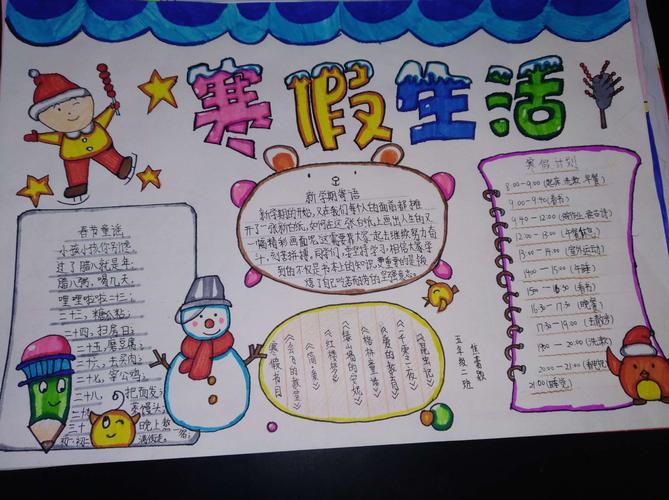 寒假生活
春节童谣
小孩小孩你别馋
过了腊八就是年
腊八粥,喝几天
哩哩啦啦二十三,
二十三,糖瓜粘;
二十四,扫房日;
二十五,磨豆腐;
二十六,去买肉;
二十七,宰公鸡;
二十八,把面发;
二十九,蒸馒头;
三十晚上熬一宿;
初一
满街走。
新学期寄语
新学期的开始,又在我们每个人的面前都摊
开了一张新白纸,如何在这一张白纸上画出人生的又
一幅精彩画面呢?这需要着大家一起去继续努力奋
斗,刻苦拼搏,同学们,学学特学习,相信大家学
到的不仅是书本上的知识,更重要的是锻
炼了自己吃苦耐劳的坚强意志。
寒假书目
《会飞的教室》
《简·爱》
《红楼梦》
《绿山墙的安妮》
《格林童话》
《爱的教育》
《一千零一夜》
《昆虫记》
五年级二班
寒假计划
8:00-9:00(起床 洗漱 早餐)
9:00-9:40(看书)
12:00-13:00(午餐
13:00-14:00(室外运动)
14:00-15:00(午睡)
15:00-16:30(看书)
16:30-17:30(晚餐)
17:30-19:00
19:00-20:00(洗漱)
20:00-21:00
21:00(睡觉)